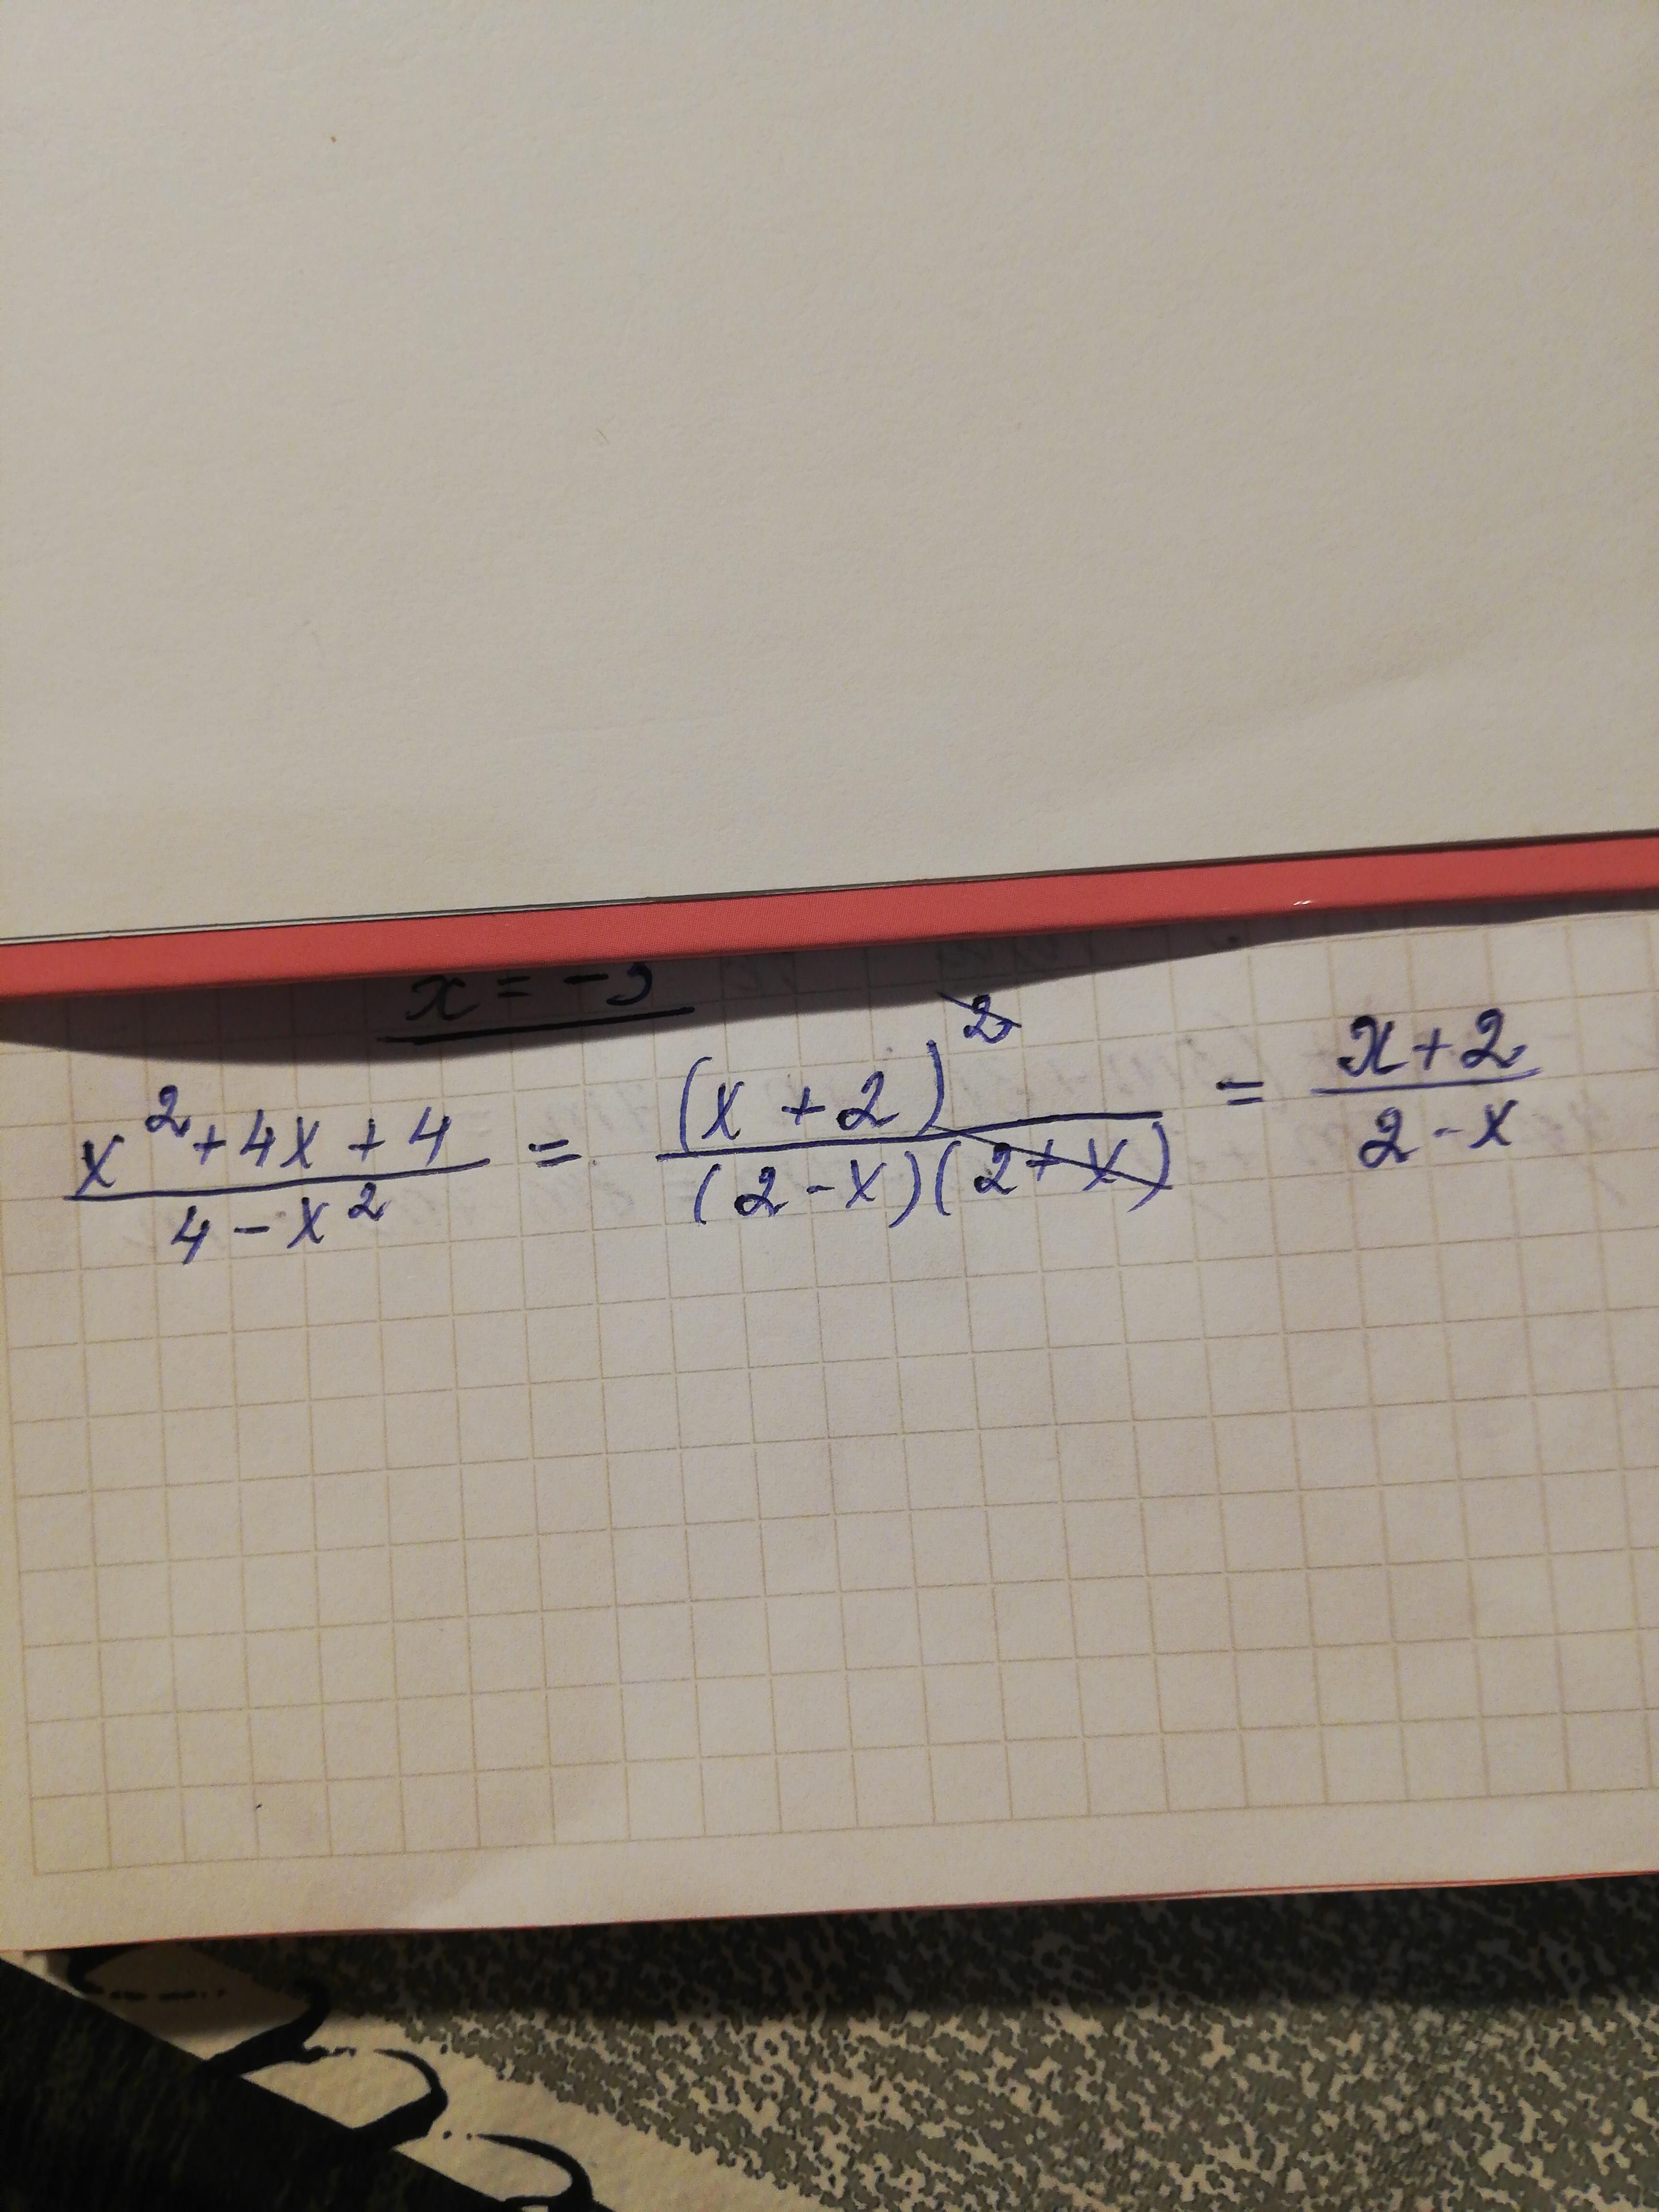 x = -3
x² + 4x + 4 / 4 - x² = (x + 2)² / (2 - x)(2 + x) = x + 2 / 2 - x